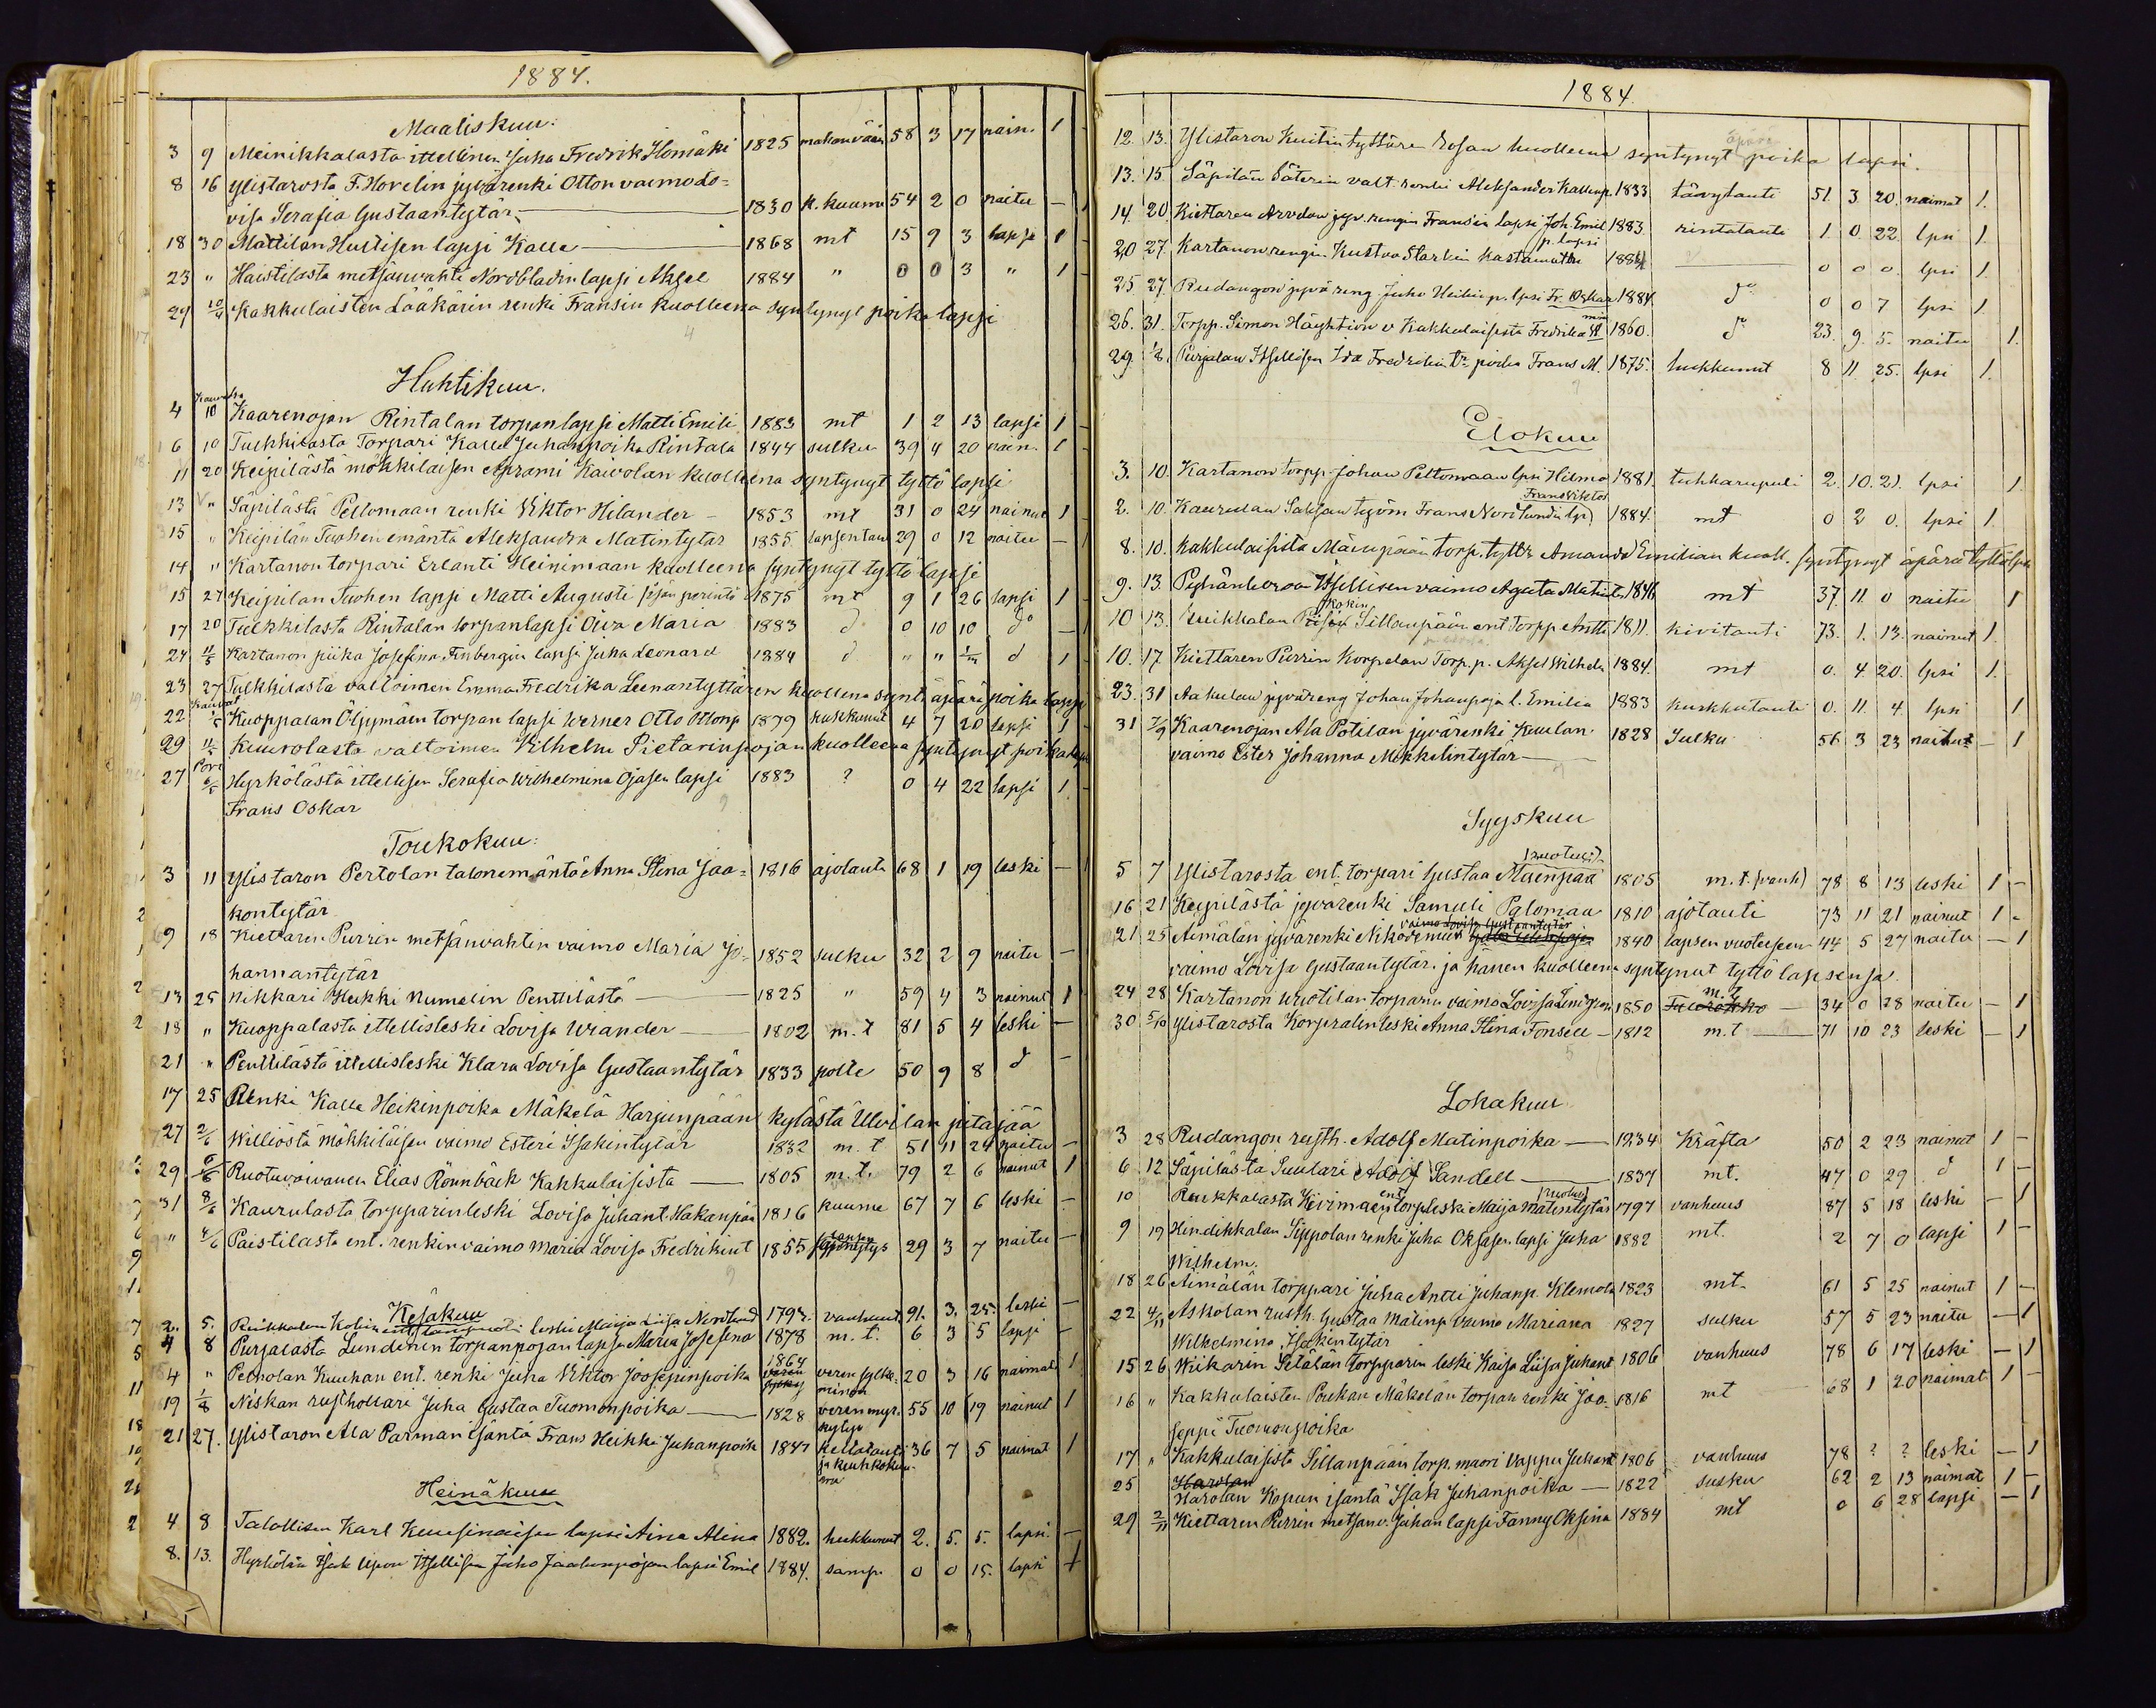 1884.
Maaliskuu.
3 9 Meinikkalasta ittellinen Juha Fredrik Ilomäki 1825 58 3 17 nain. 1 -
8 16 Ylistarosta F. Hovelin jyvärenki Otton vaimo Lo=
visa Serafia Gustaantytär 1830 k. kuume 54 2 0 naitu - 1
18 30 Mattilan Huitisen lapsi Kalle 1868 mt 15 9 3 lapsi 1 -
23 " Haistilasta metsänvahti Nordbladin lapsi Aksel 1884 " 0 0 3 " 1 -
29 20/4 Kakkulaisten Lääkärin renki Fransin kuolleena syntynyt poika lapsi
4
Huhtikuu.
4 10 Kaarenojan Rintalan torpan lapsi Matti Emili 1883 mt 1 2 13 lapsi 1 -
6 10 Tulkkilasta Torpari Kalle Juhanpoika Rintala 1844 sulku 39 4 20 nain. 1 -
11 20 Keipilästä mökkiläisen Aprami Kaivolan kuolleena syntynyt tyttö lapsi
13 " Säpilästä Peltomaan renki Viktor Hilander - 1853 mt 31 0 24 nainut 1
15 " Keipilän Tuohen emäntä Aleksandra Matintytär 1855 lapsentau 29 0 12 naitu -
14 " Kartanon torpari Erlanti Heinimaan kuolleena syntynyt tyttö lapsi
15 27 Keipilan Tuohen lapsi Matti Augusti isän perintö 1875 mt 9 1 26 lapsi 1
17 20 Tulkkilasta Rintalan torpanlapsi Oiva Maria 1883 d 0 10 10 do -
24 11/5 Kartanon piika Josefina Finbergin lapsi Juha Leonard 1884 d " " d 1
23 27 Tulkkilasta valtoimen Emma Fredrika Leenantyttären kuollena synt. äpärä poika lapsi
22 Kuoppalan Öljymäen torpan lapsi Werner Otto Ottonp 1879 hukkunut 4 7 20 lapsi 1
29 11/5 Kuurolasta valtoimen Vilhelm Pietarinpojan kuolleena syntynyt poikalapsi
27 Hyrkölästä ittellisen Serafia Wilhelmina Ojasen lapsi 1883 ? 0 4 22 lapsi 1
Frans Oskar
Toukokuu.
3 11 Ylistaron Pertolan talonemäntä Anna Stina Jaa= 1816 ajotauti 68 1 19 leski -
kontytär
9 18 Kiettaren Purrin metsänvahtin vaimo Maria Jo= 1852 sulku 32 2 9 naitu -
hannantytär
13 25 Nikkari Heikki Numelin Penttilästä 1825 " 59 4 3 nainut 1
18 " Kuoppalasta ittellisleski Lovisa Wiander 1802 m. t 81 5 4 leski -
21 " Penttilästä ittellisleski Klara Lovisa Gustaantytär 1833 polte 50 9 8 d -
17 25 Renki Kalle Heikinpoika Mäkelä Harjunpään kylästä Ulvilan pitajää
27 2/6 Williöstä mökkiläisen vaimo Esteri Isakintytär 1832 m. t 51 11 24 naitu -
29 6/6 Ruotuvaivanen Elias Rönnbäck Kakkulaisista 1805 m. t. 79 2 6 nainut 1
31 8/6 Kaurulasta torpparinleski Lovisa Juhant. Hakanpää 1816 kuume 67 7 6 leski -
" 4/6 Paistilasta ent. renkin vaimo Maria Lovisa Fredrikint 1855 29 3 7 naitu -
Kesäkuu
2. 5. leski Maija Liisa Nordlund 1793. vanhuut 91. 3. 25. leski -
4 8 Purjalasta Lundenin torpanpojan lapsi Maria Josefina 1878 m. t. 6 3 5 lapsi -
4 " Petnolan Kuuhan ent. renki Juha Viktor Joosepinpoika 1864 veren sylke-
minen 20 3 16 naimat 1
19 1/8 Niskan rusthollari Juha Gustaa Tuomonpoika 1828 verenmyr-
kytys 55 10 19 nainut 1
21 27. Ylistaron Ala Parman isäntä Frans Heikki Juhanpoika 1847 keltatauti
ja keuhkokuu-
me 36 7 5 naimat 1
Heinäkuu
4 8 Talollisen Karl Kuusinaisen lapsi Aina Alina 1882. hukkunut 2. 5. 5. lapsi. -
8. 13. Hyrkölän Isak Upon Itsellisen Juho Jaakonpojan lapsi Emil 1884. samp. 0 0 15. lapsi 1
1884.
12. 13. Ylistaron Kuitin tyttären Rosan kuolleena syntynyt äpärä poika lapsi.
13. 15. Säpilän Säterin valt. renki Aleksander Kallenp. 1833 tävytauti 51. 3. 20. naimat 1.
14. 20 Kiettaren Arvelan jyv. rengin Fransin lapsi Joh. Emil 1883 rintatauti 1. 0 22. lpsi 1.
20 27. Kartanon rengin Kustaa Starkin kastamatn p. lapsi 1884 0 0 0. lpsi 1.
25 27. Rudangon jyväreng Juho Heikinp. lpsi Fr. Oskar 1884. do 0 0 7 lpsi 1.
26. 31. Torpp. Simon Häyhtiön v Kakkulaisista Fredrika 1860. do 23. 9. 5. naitu 1.
29. 1/8. Purjalan Itsellisen Ida Fredrikin tr poika Frans M. 1875. hukkunut 8 11. 25. lpsi 1.
Elokuu
3. 10. Kartanon torpp. Johan Peltomaan lpsi Hilma 1881. tuhkarupuli 2. 10. 21. lpsi 1
2. 10. Kaurulan Salisan työm Frans Nordlundin lps Frans Viktor 1884. mt 0 2 0. lpsi 1.
8. 10. Kakkulaisista Mäenpään torp. tyttr Amanda Emilian kuoll. syntynyt äpärä tyttölpsi
9. 13. Itsellisen vaimo Agata Matint. 1846 mt 37. 11. 0 naitu 1
10 13. Sillanpään ent Torpp. Antti 1811. kivitauti 73. 1. 13. nainut 1.
10. 17. Kiettaren Purrin Korpelan Torp. p. Aksel Wilhelm 1884. mt 0. 4. 20. lpsi 1.
23. 31 Aakulan jyväreng Johan Johanpoja l. Emilia 1883 kurkkutauti 0. 11. 4. lpsi 1
31 7/9 Kaarenojan Ala Potilan jyvärenki Kuulan 1828 Sulku 56 3 23 naitu - 1
vaimo Ester Johanna Mikkelintytär
Syyskuu
5 7 Ylistarosta ent. torpari Gustaa Mäenpää (ruotusij. 1805 m. t. (vanh) 78 8 13 leski 1 -
16 21 Keipilästä jyvärenki Samuli Palomaa 1810 ajotauti 73 11 21 nainut 1 -
21 25 Äimälän jyvärenki Nikodemun vaimo Lovisa Gustaantytär 1840 lapsen vuoteeseen 44 5 27 naitu - 1
vaimo Lovisa Gustaantytär. ja hänen kuolleena syntynut tyttö lapsensa.
24 28 Kartanon Uuotilan torparin vaimo Lovisa 1850 m. t 34 0 28 naitu - 1
30 5/10 Ylistarosta Korpralin leski Anna Stina Fonsell - 1812 m. t 71 10 23 leski - 1
5
Lokakuu
3 28 Rudangon rusth. Adolf Matinpoika 1234 Kräfta 50 2 23 nainut 1 -
6 12 Säpilästä Suutari Adolf Sandell 1837 mt. 47 0 29 d 1 -
10 Reukkalasta Kivimäen ent torp leski Maija Matintytär (ruotul) 1797 vanhuus 87 5 18 leski - 1
9 19 Hindikkalan Sippolan renki Juha Oksasen lapsi Juha 1882 mt. 2 7 0 lapsi 1 -
Wilhelm.
18 26 Äimälän torppari Juha Antti Juhanp. Klemola 1823 mt. 61 5 25 nainut 1 -
22 4/11 Askolan rusth. Gustaa Matinp vaimo Mariana 1827 sulku 57 5 23 naitu - 1
Wilhelmina Isakintytär
15 26 Wiikarin Setälän torpparin leski Kaisa Liisa Juhant 1806 vanhuus 78 6 17 leski - 1
16 " Kakkulaisten Poukan Mäkelän torpan renki Joo- 1816 mt 68 1 20 naimat 1 -
seppi Tuomonpoika
17 " Kakkulaisista Sillanpään torp. muori Vappu Juhant 1806 vanhuus 78 ? ? leski - 1
25 Harolan
Harolan Kopun isäntä Isak Juhanpoika 1822 sulku 62 2 13 naimat 1 -
29 2/11 Kiettaren Purrin metsänv. Juhan lapsi Fanny Oksina 1884 mt 0 6 28 lapsi - 1